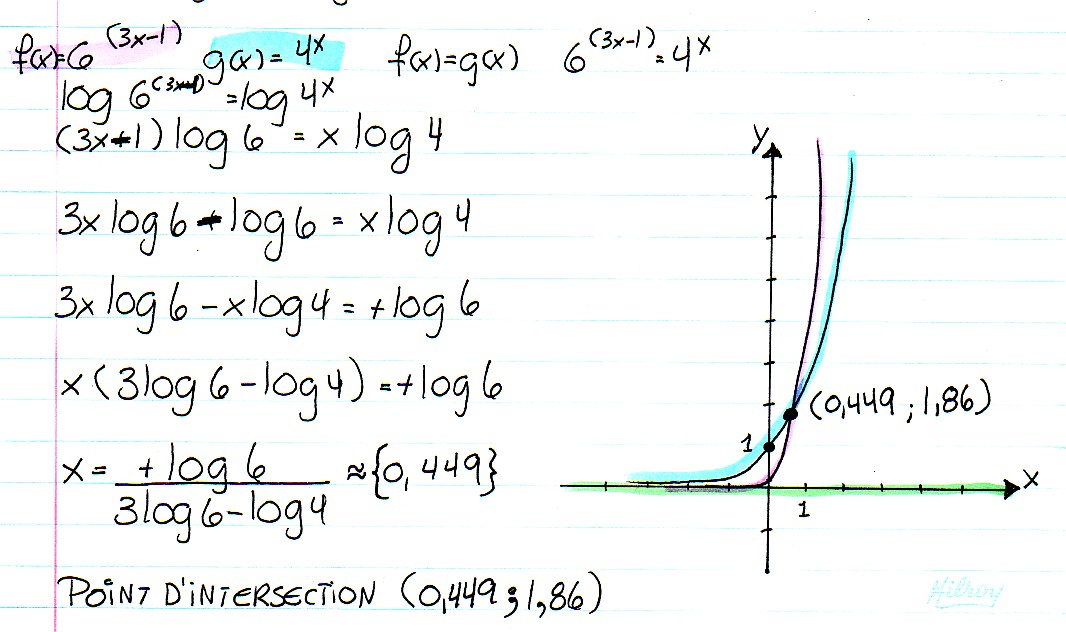 f(x)=6^(3x-1) g(x)=4^x f(x)=g(x) 6^(3x-1)=4^x
log 6^(3x-1)=log 4^x
(3x-1) log 6 = x log 4
3x log 6 - log 6 = x log 4
3x log 6 - x log 4 = + log 6
x (3 log 6 - log 4) = + log 6
x = + log 6 / 3 log 6 - log 4 ≈ {0,449}
POINT D'INTERSECTION (0,449 ; 1,86)
y
(0,449 ; 1,86)
1
x
1
Hilroy